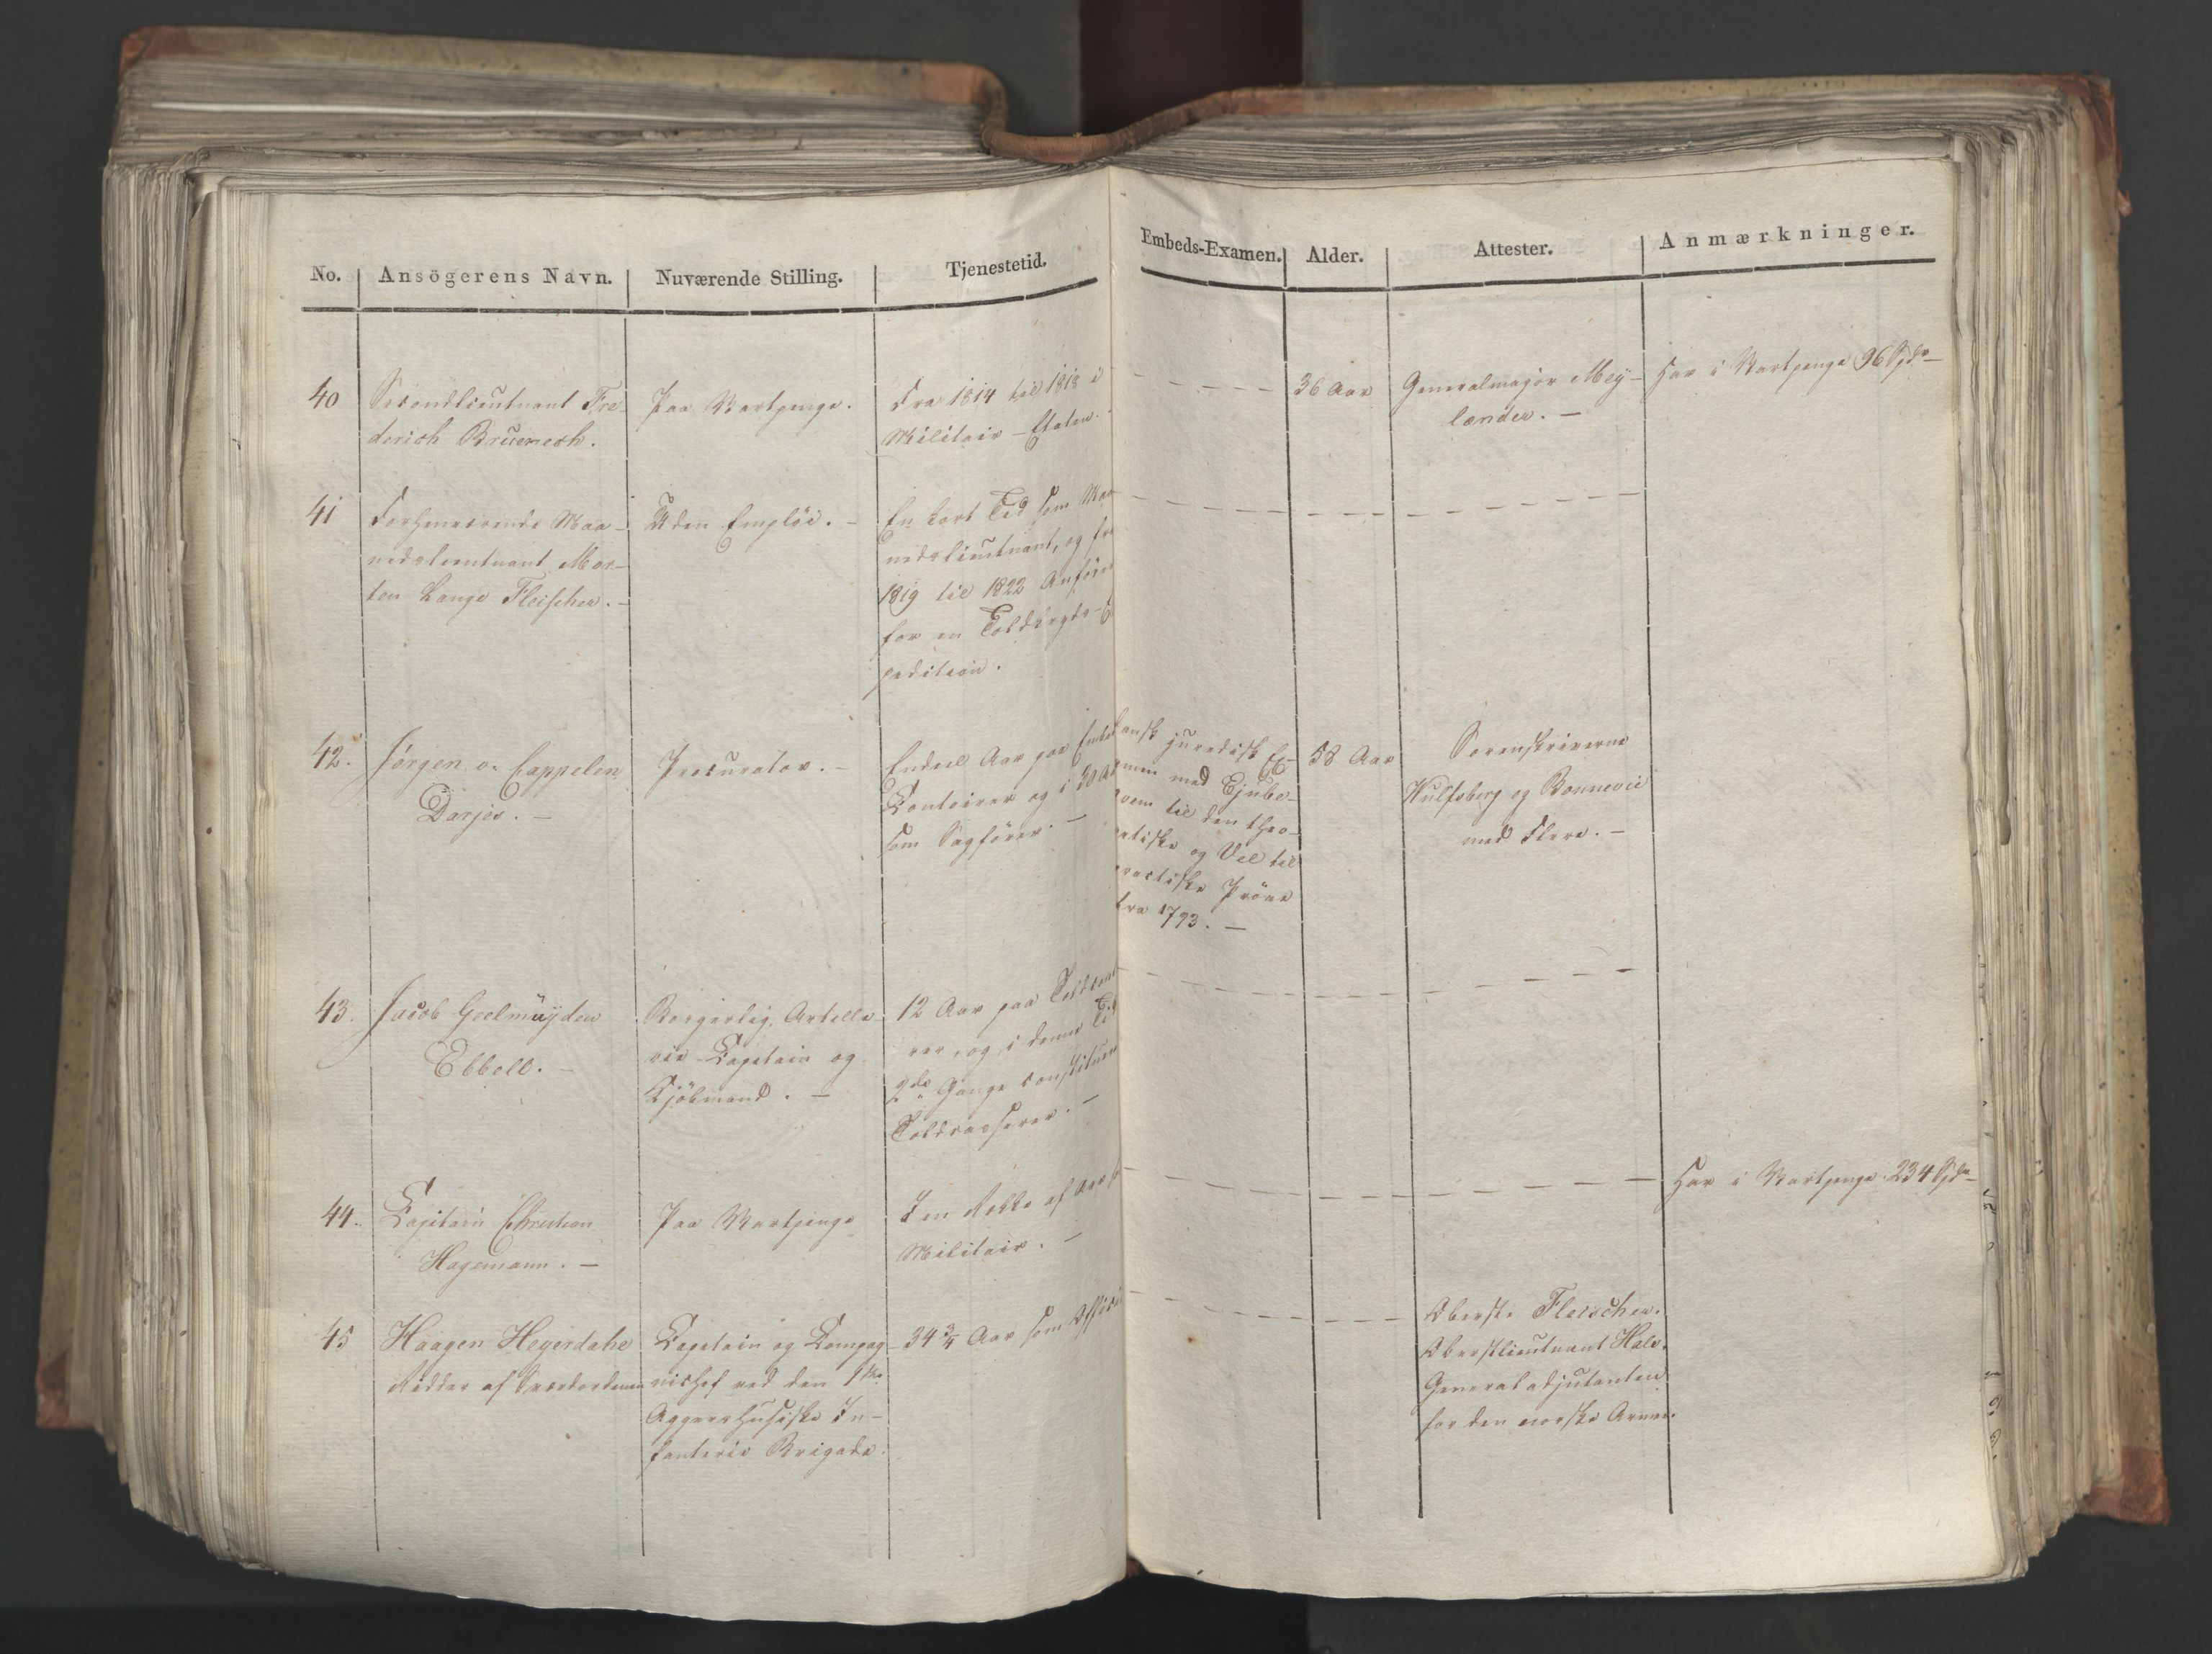 No. Ansögerens Navn. Nuværende Stilling. Tjenestetid. Embeds-Examen. Alder. Attester. Anmærkninger.
40 Secondlieutnant Fre-
derich
Paa Vartpenge.
Fra 1814 til 1818 i
Militair-Etaten.
36 Aar
Generalmajor Mey-
lænder. —
Har i Vartpenge 96 Spd
41 Forhenværende Maa-
nedslieutnant Mor-
ten Lange Fleischer. —
Uden Emploi. —
En kort Tid som Maa
nedslieutnant, og fra
1819 til 1822
for en
pedition.
42. Jørgen v. Cappelen
Darjes. —
Procurator. —
Endeel Aar paa
Contoirer og i 30 Aar
som Sagförer. —
ansk juridisk Ex-
amen med Ejube-
qvem til den theo-
retiske og Vel til
practiske Pröve
fra 1793. —
58 Aar
Sorenskriverne
Wulfsberg og Bonnevie
med Flere. —
43. Jacob Geelmuyden
Ebbell. —
Borgerlig Artille-
rie-Capitain og
Kjöbmand. —
12 Aar paa
rer, og i denne Tid
2de Gange constitueret
Toldcasserer. —
44. Capitain Christian
Hagemann. —
Paa Vartpenge
I en Række af Aar
Militair. —
Har i Vartpenge 234 Spd
45 Haagen Heyerdahl
Ridder af Sværdordenen
Capitain og Compag-
nichef ved den 1ste
Aggershusiske In-
fanterie Brigade.
34 3/4 Aar som Officier
Oberste Fleischer.
Oberstlieutnant Hals.
Generaladjutanten
for den norske Armee.